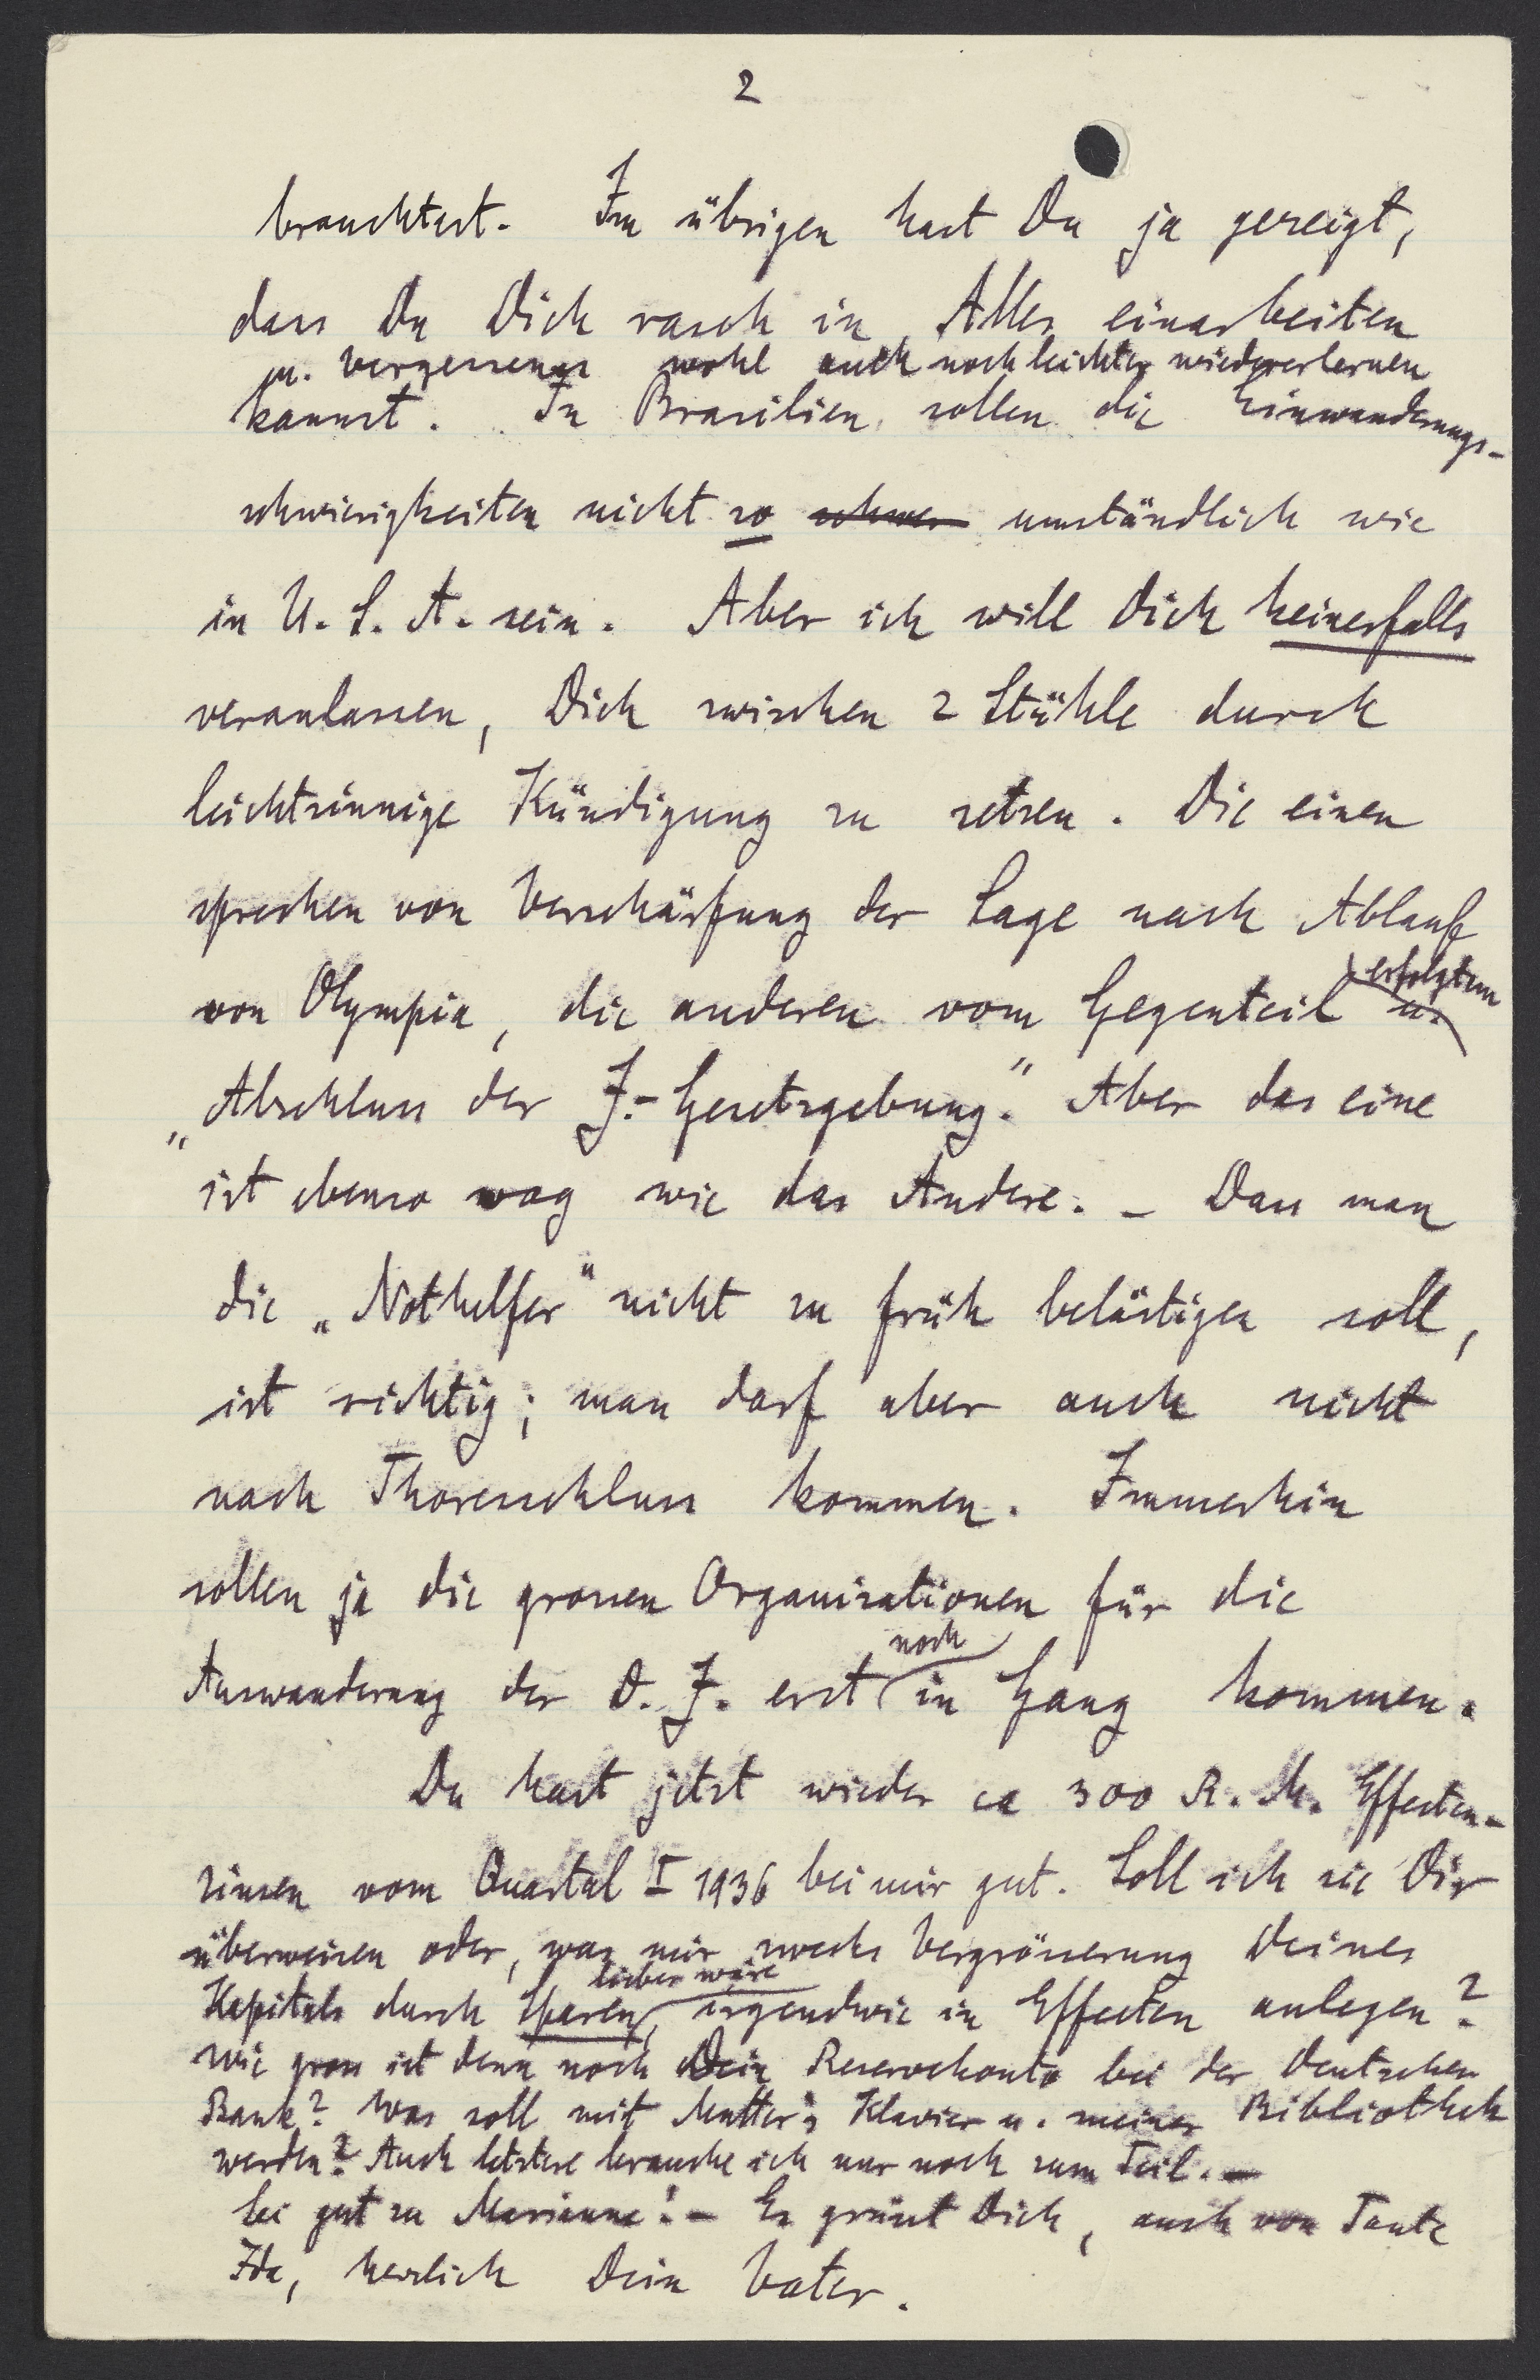 2
brauchtest. Im übrigen hast Du ja gezeigt,
dass Du Dich rasch in Alles einarbeiten
u. Vergessenes wohl auch noch leichter wiedererlernen
kannst. In Brasilien sollen die Einwanderungs-
schwierigkeiten nicht so schwer umständlich wie
in U.S.A. sein. Aber ich will Dich keinesfalls
veranlassen, Dich zwischen 2 Stühle durch
leichtsinnige Kündigung zu setzen. Die einen
sprechen von Verschärfung der Lage nach Ablauf
erfolgtem
von Olympia, die anderen vom Gegenteil u.
„Abschluss der J.-Gesetzgebung." Aber das eine
ist ebenso vag wie das Andere. - Dass man
die „Nothelfer" nicht zu früh belästigen soll,
ist richtig; man darf aber auch nicht
nach Thoresschluss kommen. Immerhin
sollen ja die grossen Organisationen für die
noch
Auswanderung der D. J. erst in Gang kommen.
Du hast jetzt wieder ca 300 R.M. Effecten-
zinsen vom Quartal I 1936 bei mir gut. Soll ich sie Dir
überweisen oder, was mir zwecks Vergrösserung Deines
lieber wäre
Kapitals durch Sparen, irgendwie in Effecten anlegen?
Wie gross ist denn noch Dein Reservekonto bei der Deutschen
Bank? Was soll mit Mutter's Klavier u. meiner Bibliothek
werden? Auch letztere brauche ich nur noch zum Teil. -
Sei gut zu Marianne! - Es grüsst Dich, auch von Tante
Ida, herzlich Dein Vater.